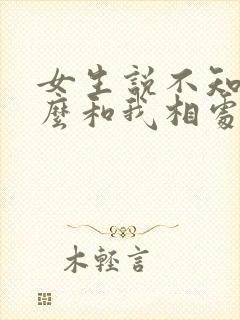 女生説不知
麽和我相處
木輕言